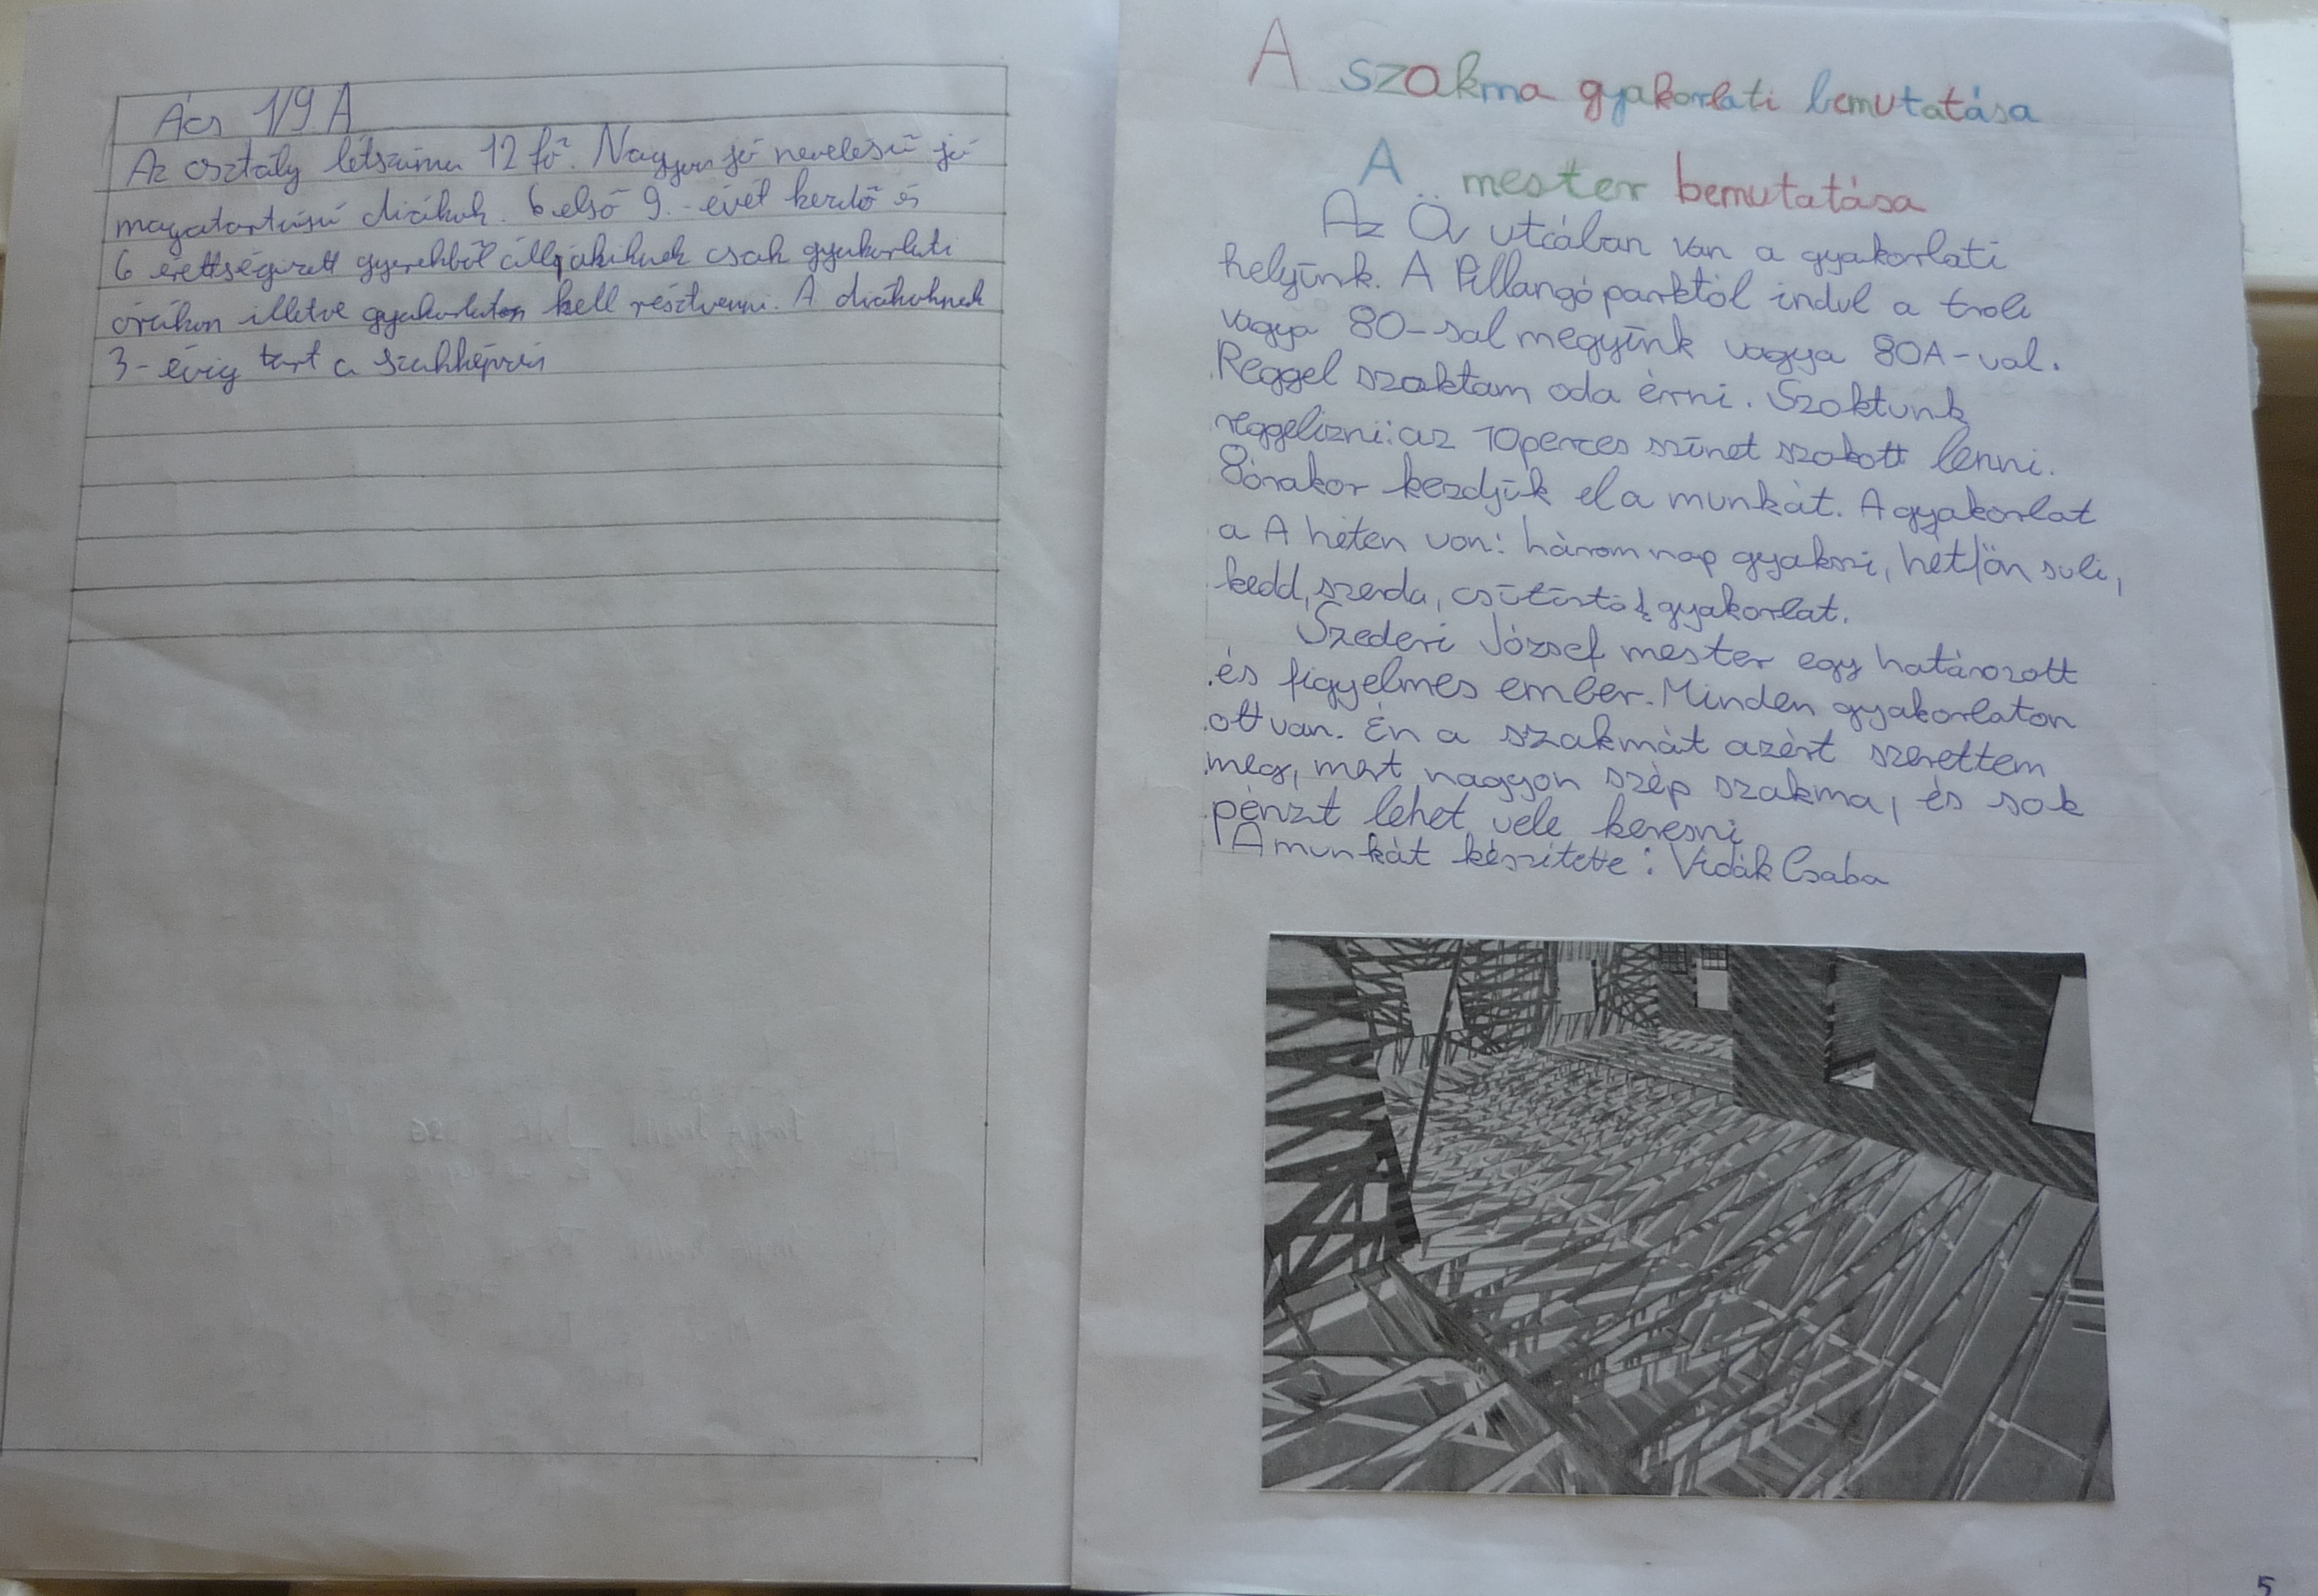 Ács 1/9. A
Az osztály létszáma 12 fő. Nagyon jó nevelésű jó
magatartású diákok. 6 első 9.-évét kezdő és
6 érettségizett gyerekből áll, akiknek csak gyakorlati
órákon illetve gyakorlaton kell résztvenni. A diákoknek
3-évig tart a szakképzés
A szakma gyakorlati bemutatása
A mester bemutatása
Az Öv utcában van a gyakorlati
helyünk. A Pillangóparktól indul a troli
vagya 80-sal megyünk vagya 80A-val.
Reggel szoktam oda érni. Szoktunk
reggelizni: az 10perces szünet szokott lenni.
8órakor kezdjük el a munkát. A gyakorlat
a A héten van: három nap gyakni, hétfőn suli,
kedd, szerda, csütörtök gyakorlat.
Szederi József mester egy határozott
és figyelmes ember. Minden gyakorlaton
ott van. Én a szakmát azért szerettem
meg, mert nagyon szép szakma, és sok
pénzt lehet vele keresni
A munkát készítette: Vidák Csaba
5